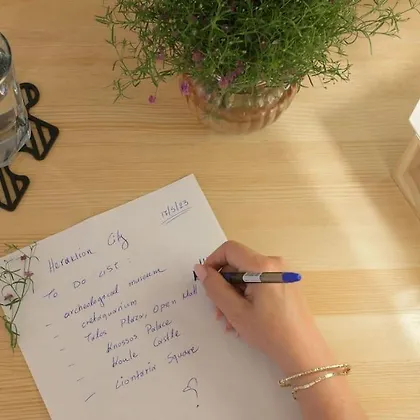 12/5/23
Heraklion City
To Do List:
- archeological museum
- cretaquarium
- Talos Plaza, Open Mall
- Knossos Palace
- Koule Castle
- Liontaria Square